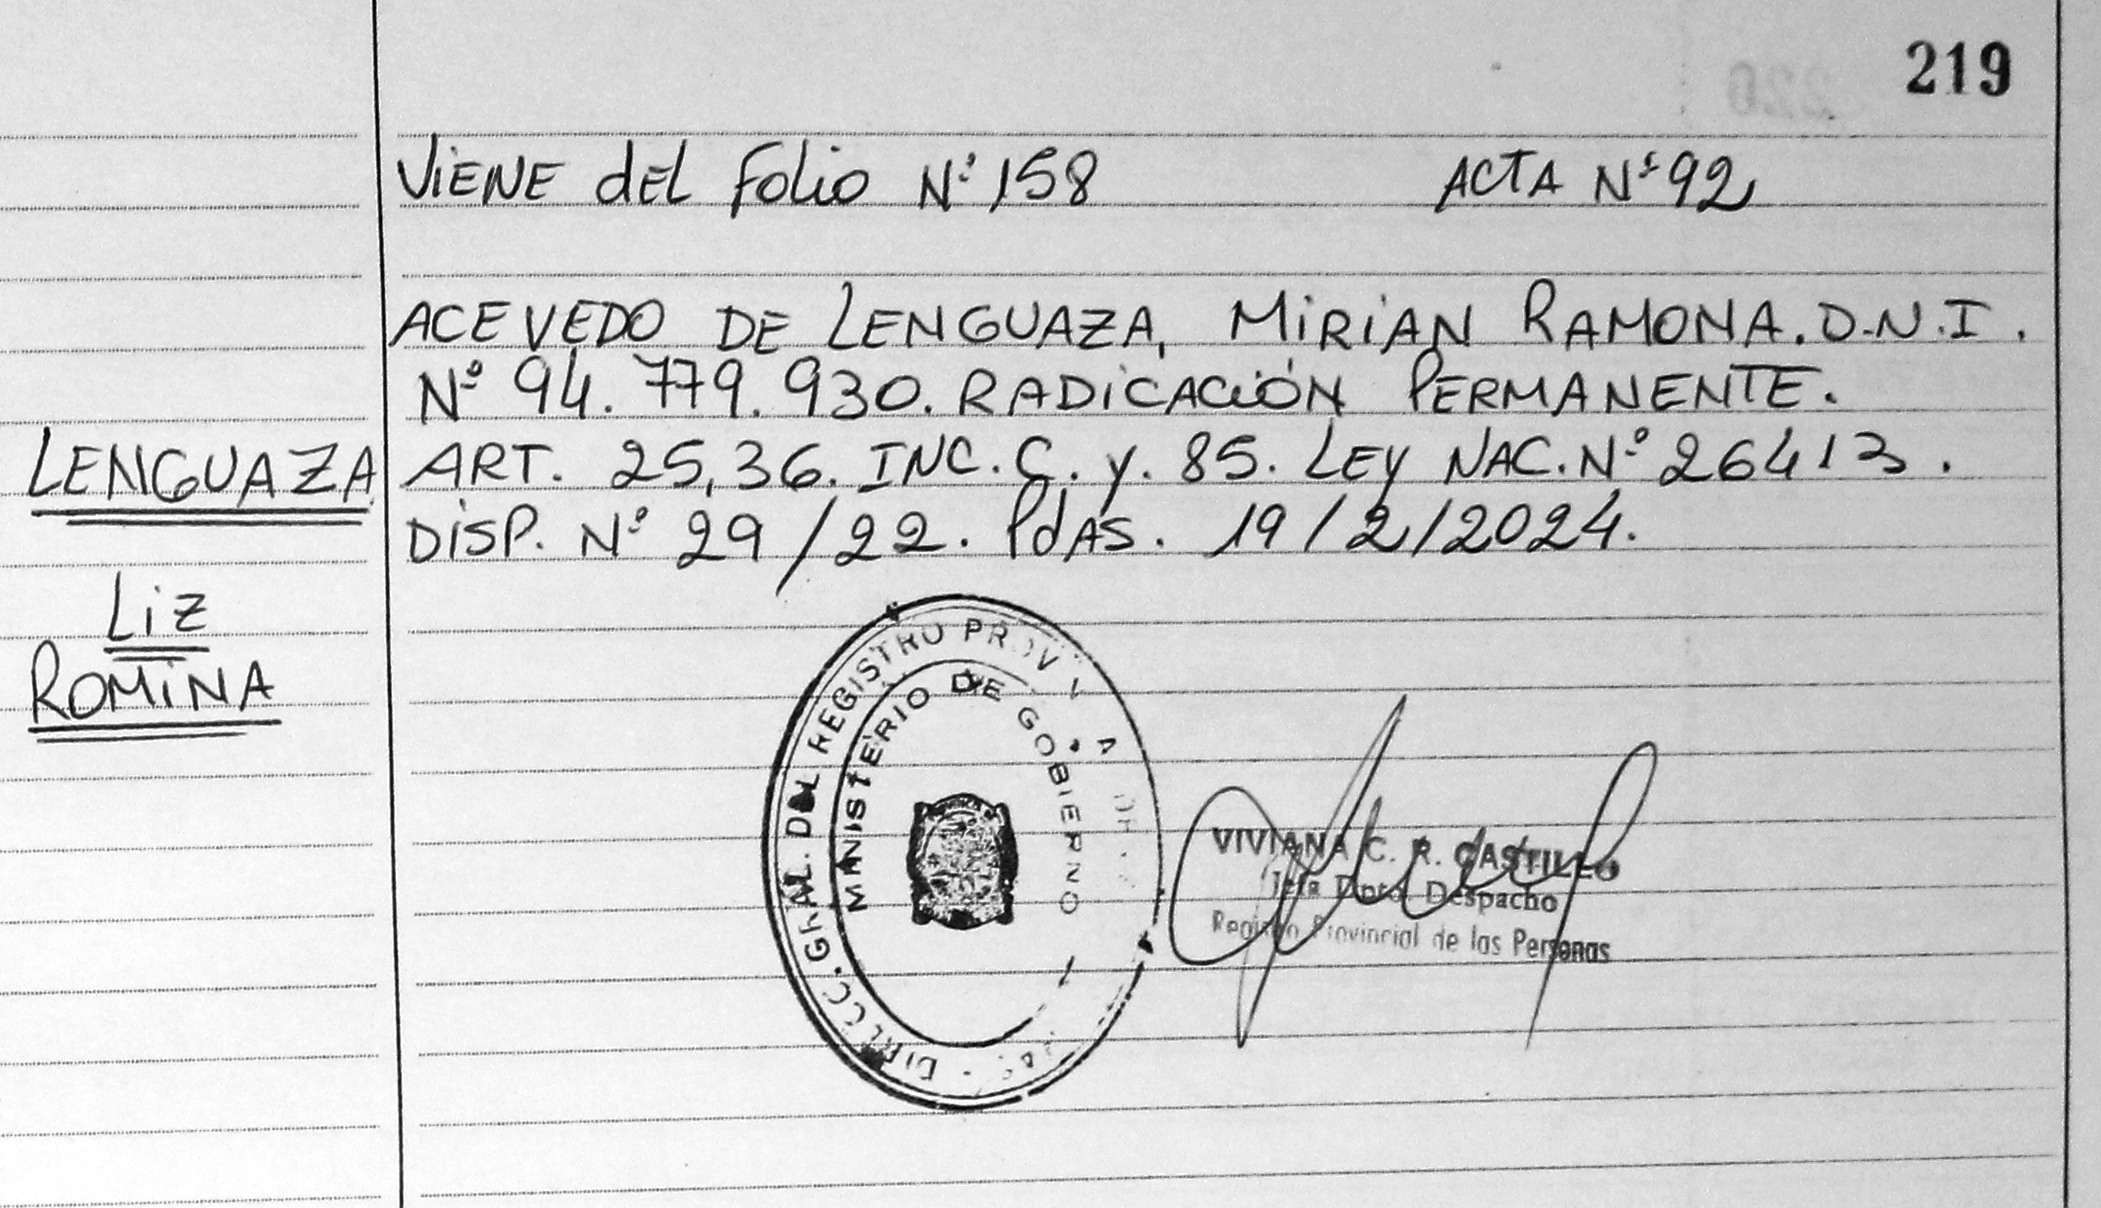 219
VIENE dEL Folio N° 158 ACTA N° 92
ACEVEDO DE LENGUAZA, MIRIAN RAMONA. D.N.I.
N° 94.779.930. RADICACIÓN PERMANENTE.
LENGUAZA
ART. 25,36. INC. C. y. 85. LEY NAC. N° 26413.
DISP. N° 29/22. PdAS. 19/2/2024.
Liz
ROMINA
GRAL. DEL REGISTRO PROV
MINISTERIO DE GOBIERNO
VIVIANA C. R. CASTILLO
Jefa Dpto. Despacho
Registro Provincial de las Personas